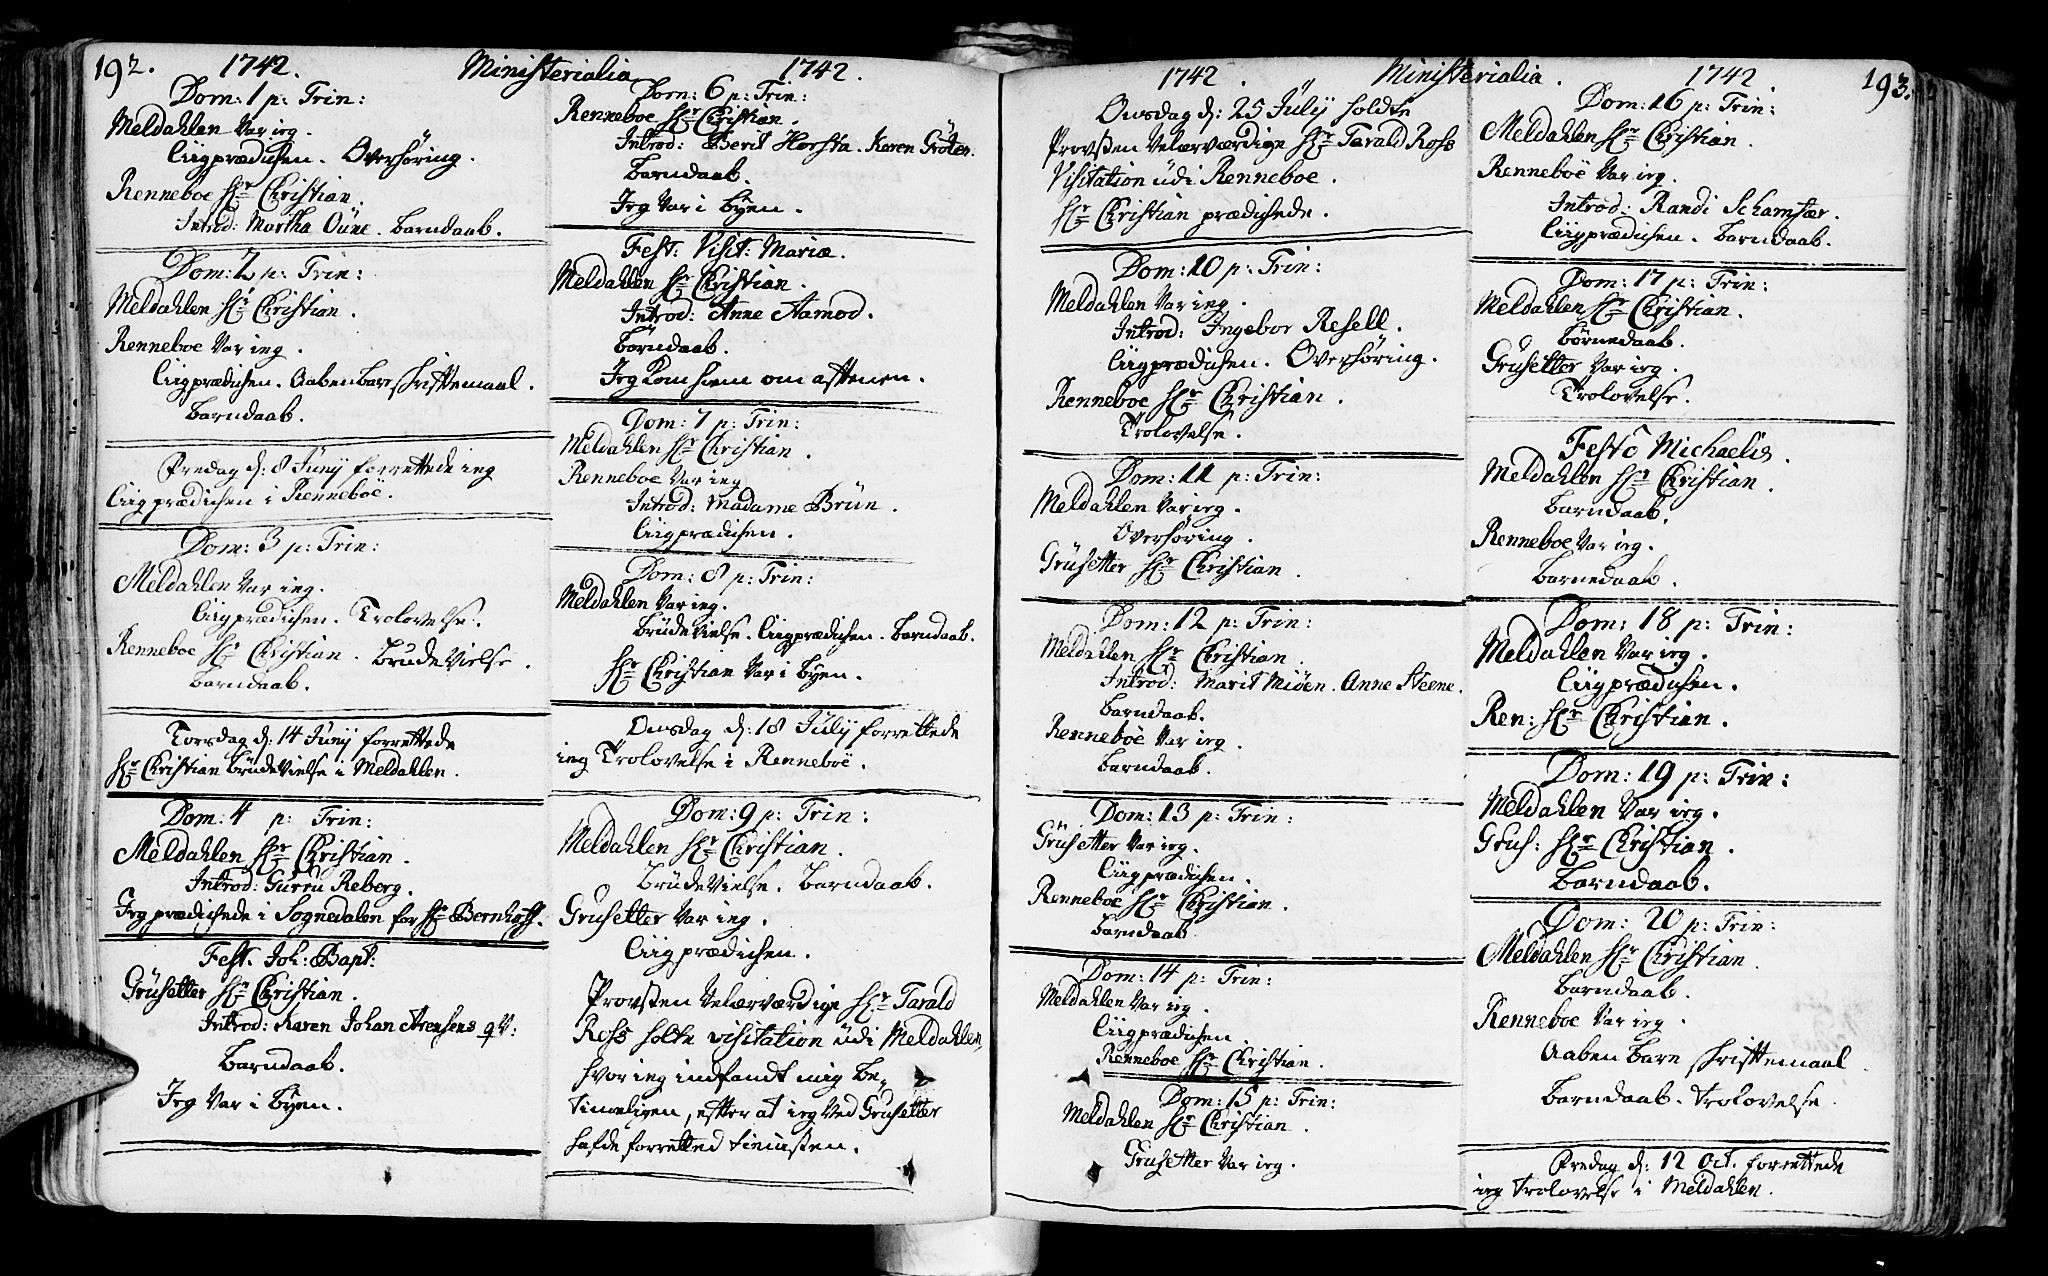 192. 1742. Ministerialia 1742.
Dom: 1 p: Trin:
Meldahlen var ieg.
Liigprædichen. Overhøring.
Renneboe Hr Christian.
Introd: Martha Oüne. Barndaab.
Dom: 2 p: Trin:
Meldahlen Hr Christian.
Renneboe var ieg.
Liigprædichen. Aabenbare skrifftemaal.
Barndaab.
Fredag d: 8 Junÿ forrettede ieg
Liigprædichen i Renneboe.
Dom: 3 p: Trin:
Meldahlen var ieg.
Liigprædichen. Trolovelse.
Renneboe Hr Christian. Brudevielse.
Barndaab.
Torsdag d: 14 Junÿ forrettede
Hr Christian Brüdevielse i Meldahlen.
Dom: 4 p: Trin:
Meldahlen Hr Christian.
Introd: Gurru Reberg.
Jeg prædichede i Sognedalen for Hr Bernhoft.
Fest. Joh: Bapt:
Grüsetter Hr Christian.
Introd: Karen Johan Arensens qv:
Barndaab.
Jeg var i Byen.
Dom: 6 p: Trin:
Renneboe Hr Christian.
Introd: Berit Horsta. Karen Gröten.
Barndaab.
Jeg var i Byen.
Fest: Visit: Mariæ.
Meldahlen Hr Christian.
Introd: Anne Aamod.
Barndaab.
Jeg kom hiem om afftenen.
Dom: 7 p: Trin:
Meldahlen Hr Christian.
Renneboe var ieg
Introd: Madame Brün.
Liigprædichen.
Dom: 8 p: Trin:
Meldahlen var ieg.
Brüdevielse. Liigprædichen. Barndaab.
Hr Christian var i Byen.
Onsdag d: 18 Julÿ forrettede
ieg Trolovelse i Renneboe.
Dom: 9 p: Trin:
Meldahlen Hr Christian.
Brüdevielse. Barndaab.
Grusetter var ieg.
Liigprædichen.
Provsten velærværdige Hr Tarald
Ross holte visitation üdi Meldahlen,
hvor ieg indfandt mig be-
timeligen, effter at ieg ved Grusetter
hafde forretted tienesten.
1742. Ministerialia. 1742. 193.
Onsdag d: 25 Julÿ holdte
Provsten velærværdige Hr Tarald Ross
Visitation üdi Renneboe.
Hr Christian prædichede.
Dom: 10 p: Trin:
Meldahlen var ieg.
Introd: Ingebor Resell.
Liigprædichen. Overhøring.
Renneboe Hr Christian.
Trolovelse.
Dom: 11 p: Trin:
Meldahlen var ieg.
Overhøring.
Grüsetter Hr Christian.
Dom: 12 p: Trin:
Meldahlen Hr Christian.
Introd: Marit Mioen. Anne Steene.
Barndaab.
Renneboe var ieg.
Barndaab.
Dom: 13 p: Trin:
Grüsetter var ieg.
Liigprædichen.
Renneboe Hr Christian.
Barndaab.
Dom: 14 p: Trin:
Meldahlen var ieg.
Liigprædichen
Renneboe Hr Christian.
Dom: 15 p: Trin:
Meldahlen Hr Christian.
Grusetter var ieg.
Dom: 16 p: Trin:
Meldahlen Hr Christian.
Renneboe var ieg.
Introd: Randi Schamfær.
Liigprædichen. Barndaab.
Dom: 17 p: Trin:
Meldahlen Hr Christian.
Børnedaab.
Grusetter var ieg.
Trolovelse.
Festo Michaelis.
Meldahlen Hr Christian.
Barndaab.
Renneboe var ieg.
Barnedaab.
Dom: 18 p: Trin:
Meldahlen var ieg.
Liigprædichen.
Ren: Hr Christian.
Dom: 19 p: Trin:
Meldahlen var ieg.
Grus: Hr Christian.
Barndaab.
Dom: 20 p: Trin:
Meldahlen Hr Christian.
Barndaab.
Renneboe var ieg.
Aabenbare skrifftemaal.
Barndaab. Trolovelse.
Fredag d: 12 Oct. forrettede
ieg Trolovelse i Meldahlen.